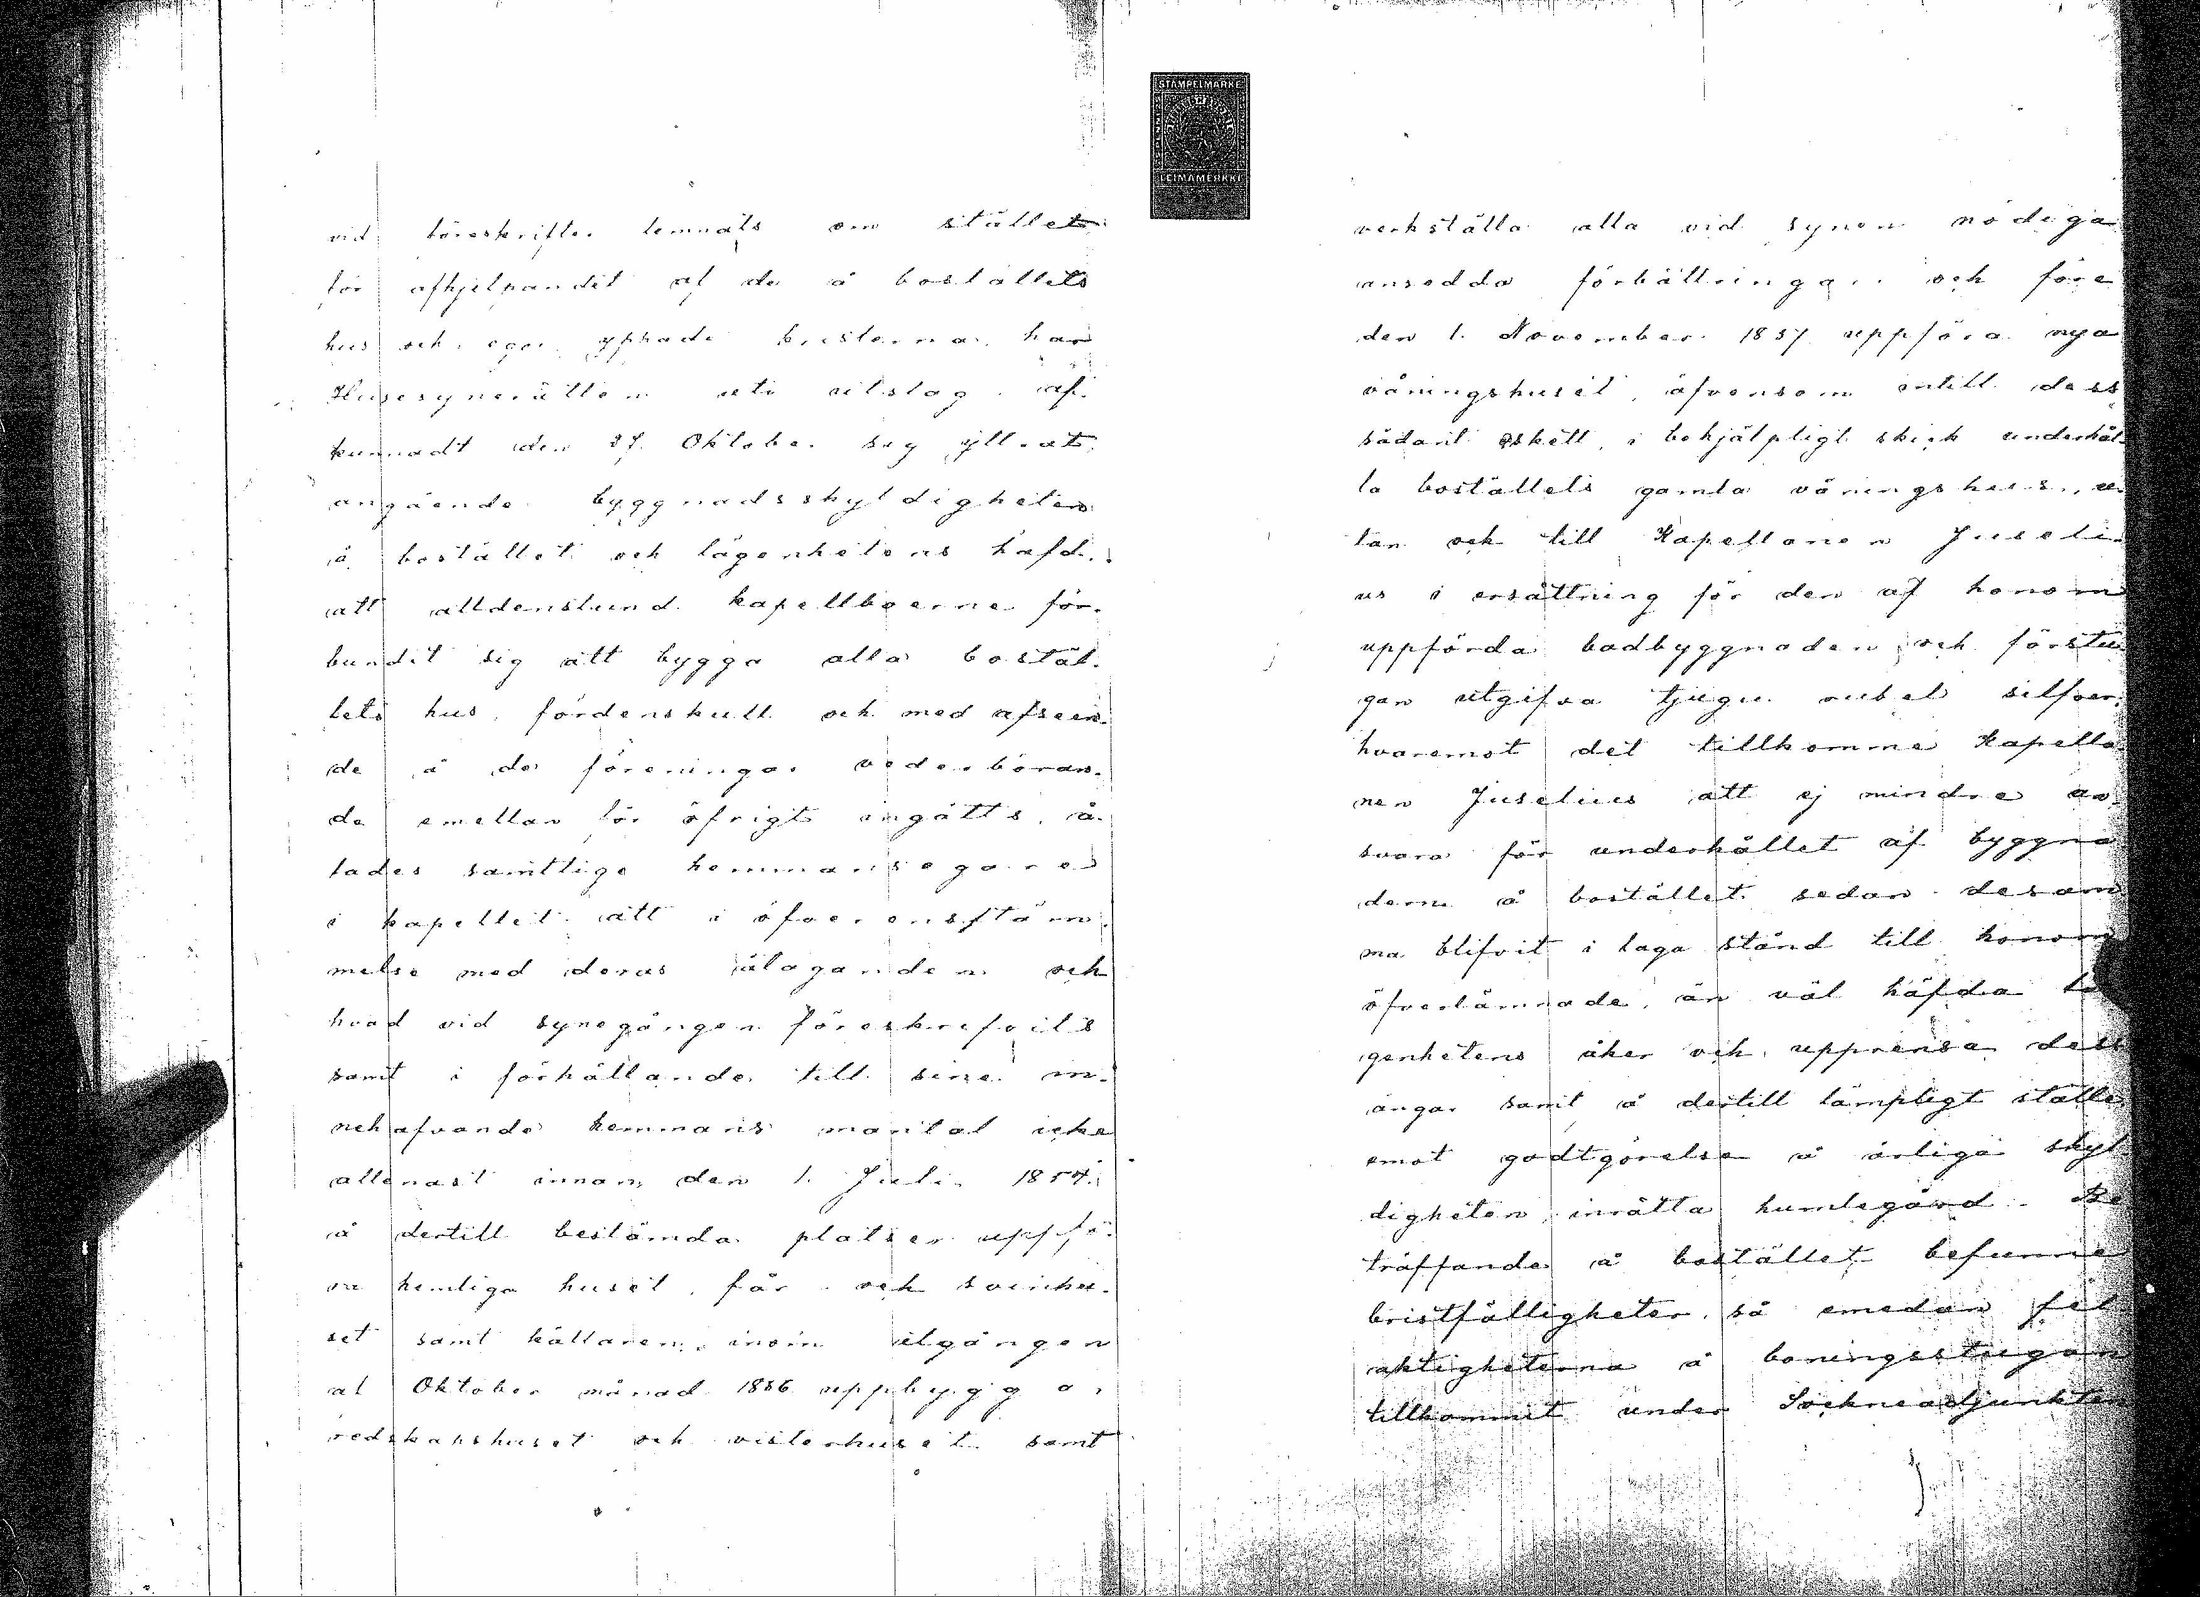 vid föreskrifter lemnats om stället
för afhjelpandet af de å boställets
hus och egor yppade bristerna, har
Husesynerätten uti utslag af-
kunnadt den 27 Oktober sig yttrat
angående byggnadsskyldigheten
å bostället och lägenhetens häfd,
att alldenstund kapellboerne för-
bundit sig att bygga alla bostäl-
lets hus, fördenskull och med afseen-
de å de föreningar vederböran-
de emellan för öfrigt ingåtts, å-
lades samtlige hemmansegare
i kapellet att i öfverensstäm-
melse med deras åtaganden och
hvad vid synegången föreskrefvits
samt i förhållande till sine in-
nehafvande hemmans mantal icke
allenast innan den 1. Juli 1857.
å dertill bestämda platser uppfö-
ra hemliga huset, får- och svinhu-
set samt källaren, inom utgången
af Oktober månad 1856 uppbygga
redskapshuset och visterhuset samt
STÄMPELMÄRKE
LEIMAMERKKI
verkställa alla vid synen nödiga
ansedda förbättringar och före
den 1. November 1857 uppföra nya
våningshuset, äfvensom intill dess
sådant skett, i behjälpligt skick underhål-
la boställets gamla våningshus, u-
tan ock till Kapellanen Juseli-
us i ersättning för den af honom
uppförda badbyggnaden och förstu-
gan utgifva tjugu rubel silfver,
hvaremot det tillkomme Kapella-
nen Juselius att ej mindre an-
svara för underhållet af byggna
derne å bostället sedan desam
ma blifvit i laga stånd till honom
öfverlämnade, än väl häfda lä
genhetens åker och upprensa dess
ängar samt å dertill lämpligt ställe
emot godtgörelse å årliga skyl
digheten inrätta humlegård. Be
träffande å bostället befunne
bristfälligheter, så emedan fel
aktigheterna å boningsstugan
tillkommit under Sockneadjunkten